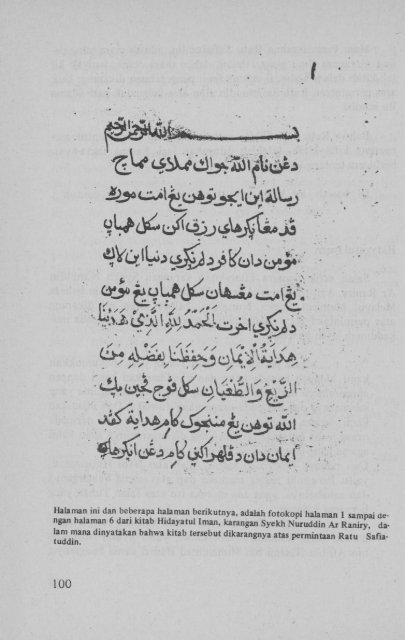 ١
بسم الله الرحمن الرحيم
دغن نام الله جواك مملاءي مماچ
رسالة اين ايجو توهن يغ امت موره
قد مغانكرهاي رزق اكن سكل همباڽ
مؤمن دان كافر دلم نكري دنيا اين لاك
يغ امت مغسهان سكل همباڽ يغ مؤمن
دلم نكري اخرت الْحَمْدُ لِلّٰهِ الَّذِيْ هَدٰىنَا
هِدَايَةُ الْاِيْمَانِ وَحَفِظَنَا بِفَضْلِهِ مِنَ
الزَّيْغِ وَالطُّغْيَانِ سكل فوج فجين بك
الله توهن يغ منجوك كامي هداية كفد
ايمان دان دفلهراكن كامي دغن انكرهاڽ
Halaman ini dan beberapa halaman berikutnya, adalah fotokopi halaman 1 sampai de-
ngan halaman 6 dari kitab Hidayatul Iman, karangan Syekh Nuruddin Ar Raniry, da-
lam mana dinyatakan bahwa kitab tersebut dikarangnya atas permintaan Ratu Safia-
tuddin.
100